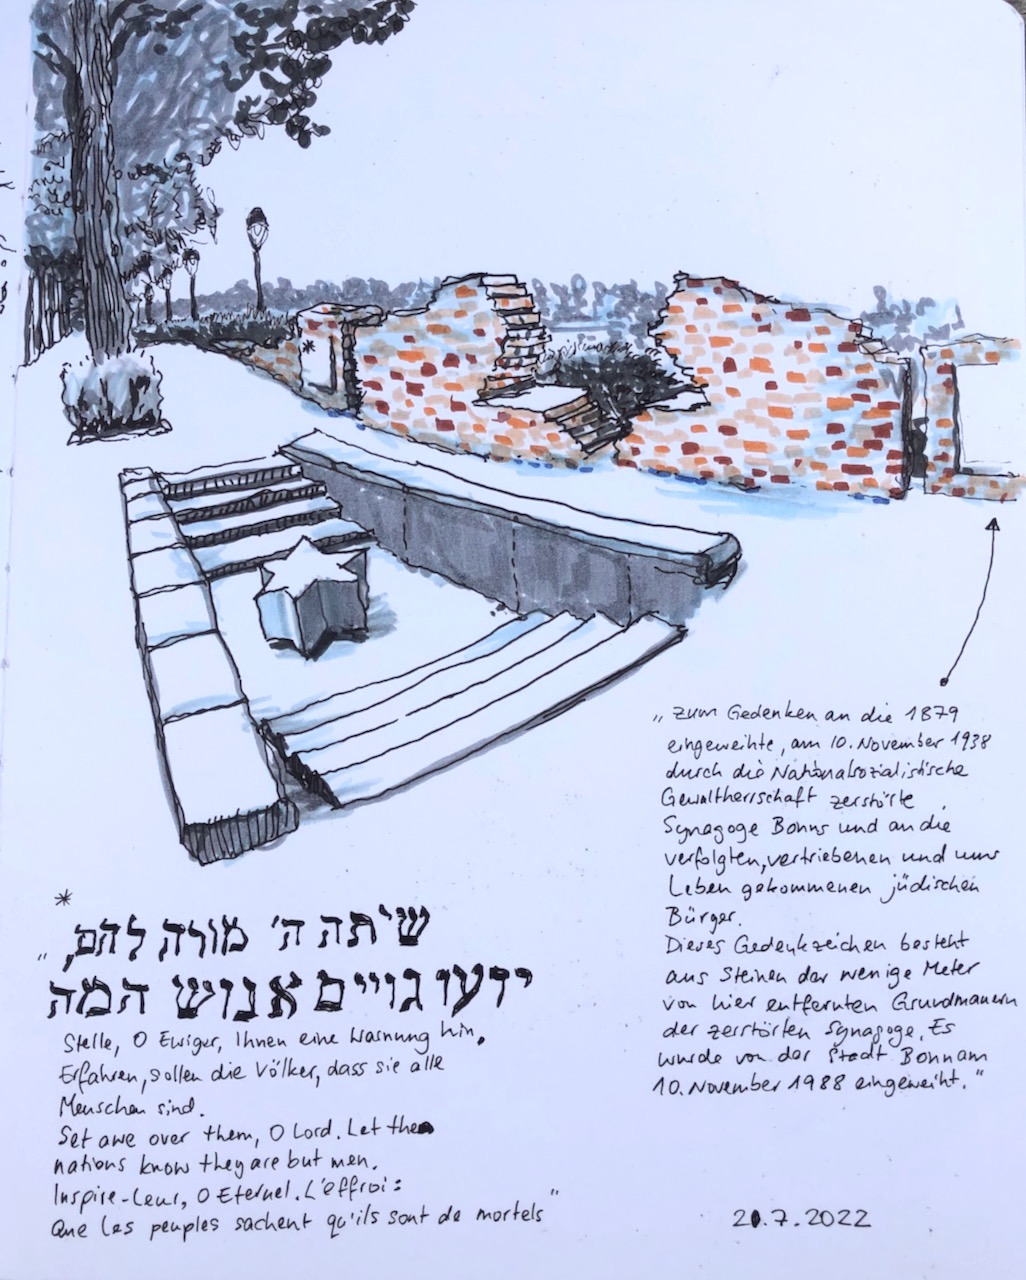 „Zum Gedenken an die 1879
eingeweihte, am 10. November 1938
durch die Nationalsozialistische
Gewaltherrschaft zerstörte
Synagoge Bonns und an die
verfolgten, vertriebenen und ums
Leben gekommenen jüdischen
Bürger.
Dieses Gedenkzeichen besteht
aus Steinen der wenige Meter
von hier entfernten Grundmauern
der zerstörten Synagoge. Es
wurde von der Stadt Bonn am
10. November 1988 eingeweiht."
*
שיתה ה' מורה להם,
„ידעו גויים אנוש המה
Stelle, O Ewiger, Ihnen eine Warnung hin.
Erfahren, sollen die Völker, dass sie alle
Menschen sind.
Set awe over them, O Lord. Let the
nations know they are but men.
Inspire-Leur, O Eternel. L'effroi:
Que les peuples sachent qu'ils sont de mortels"